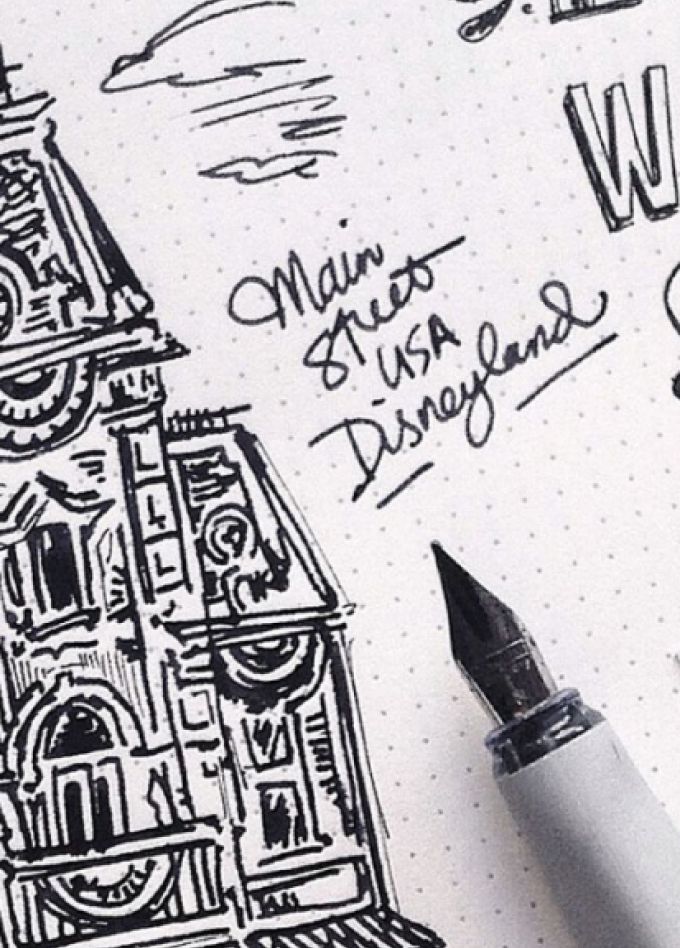 W
Main
Street
USA
Disneyland